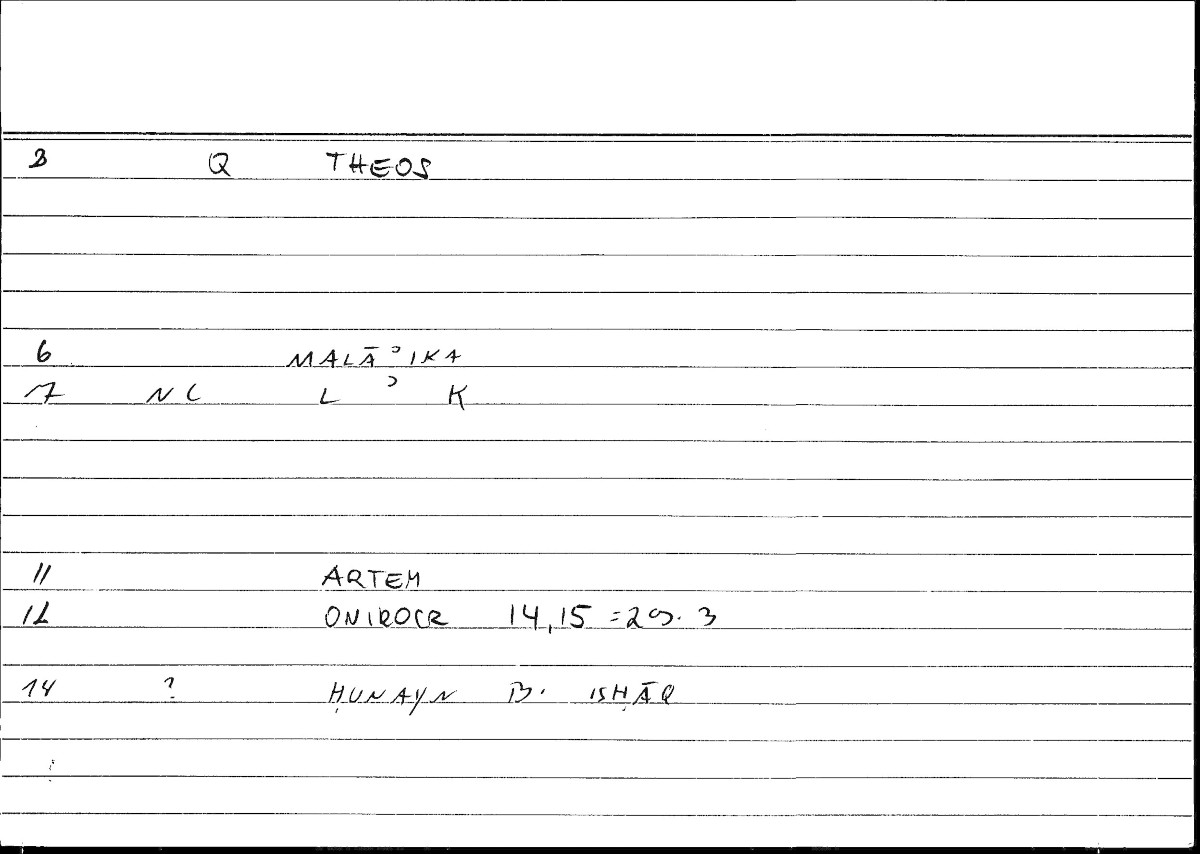 3 Q THEOS
6 MALĀʾIKA
7 NC L ʾ K
11 ARTEM
12 ONIROCR 14,15 = 29. 3
14 ? ḤUNAYN B. ISḤĀQ